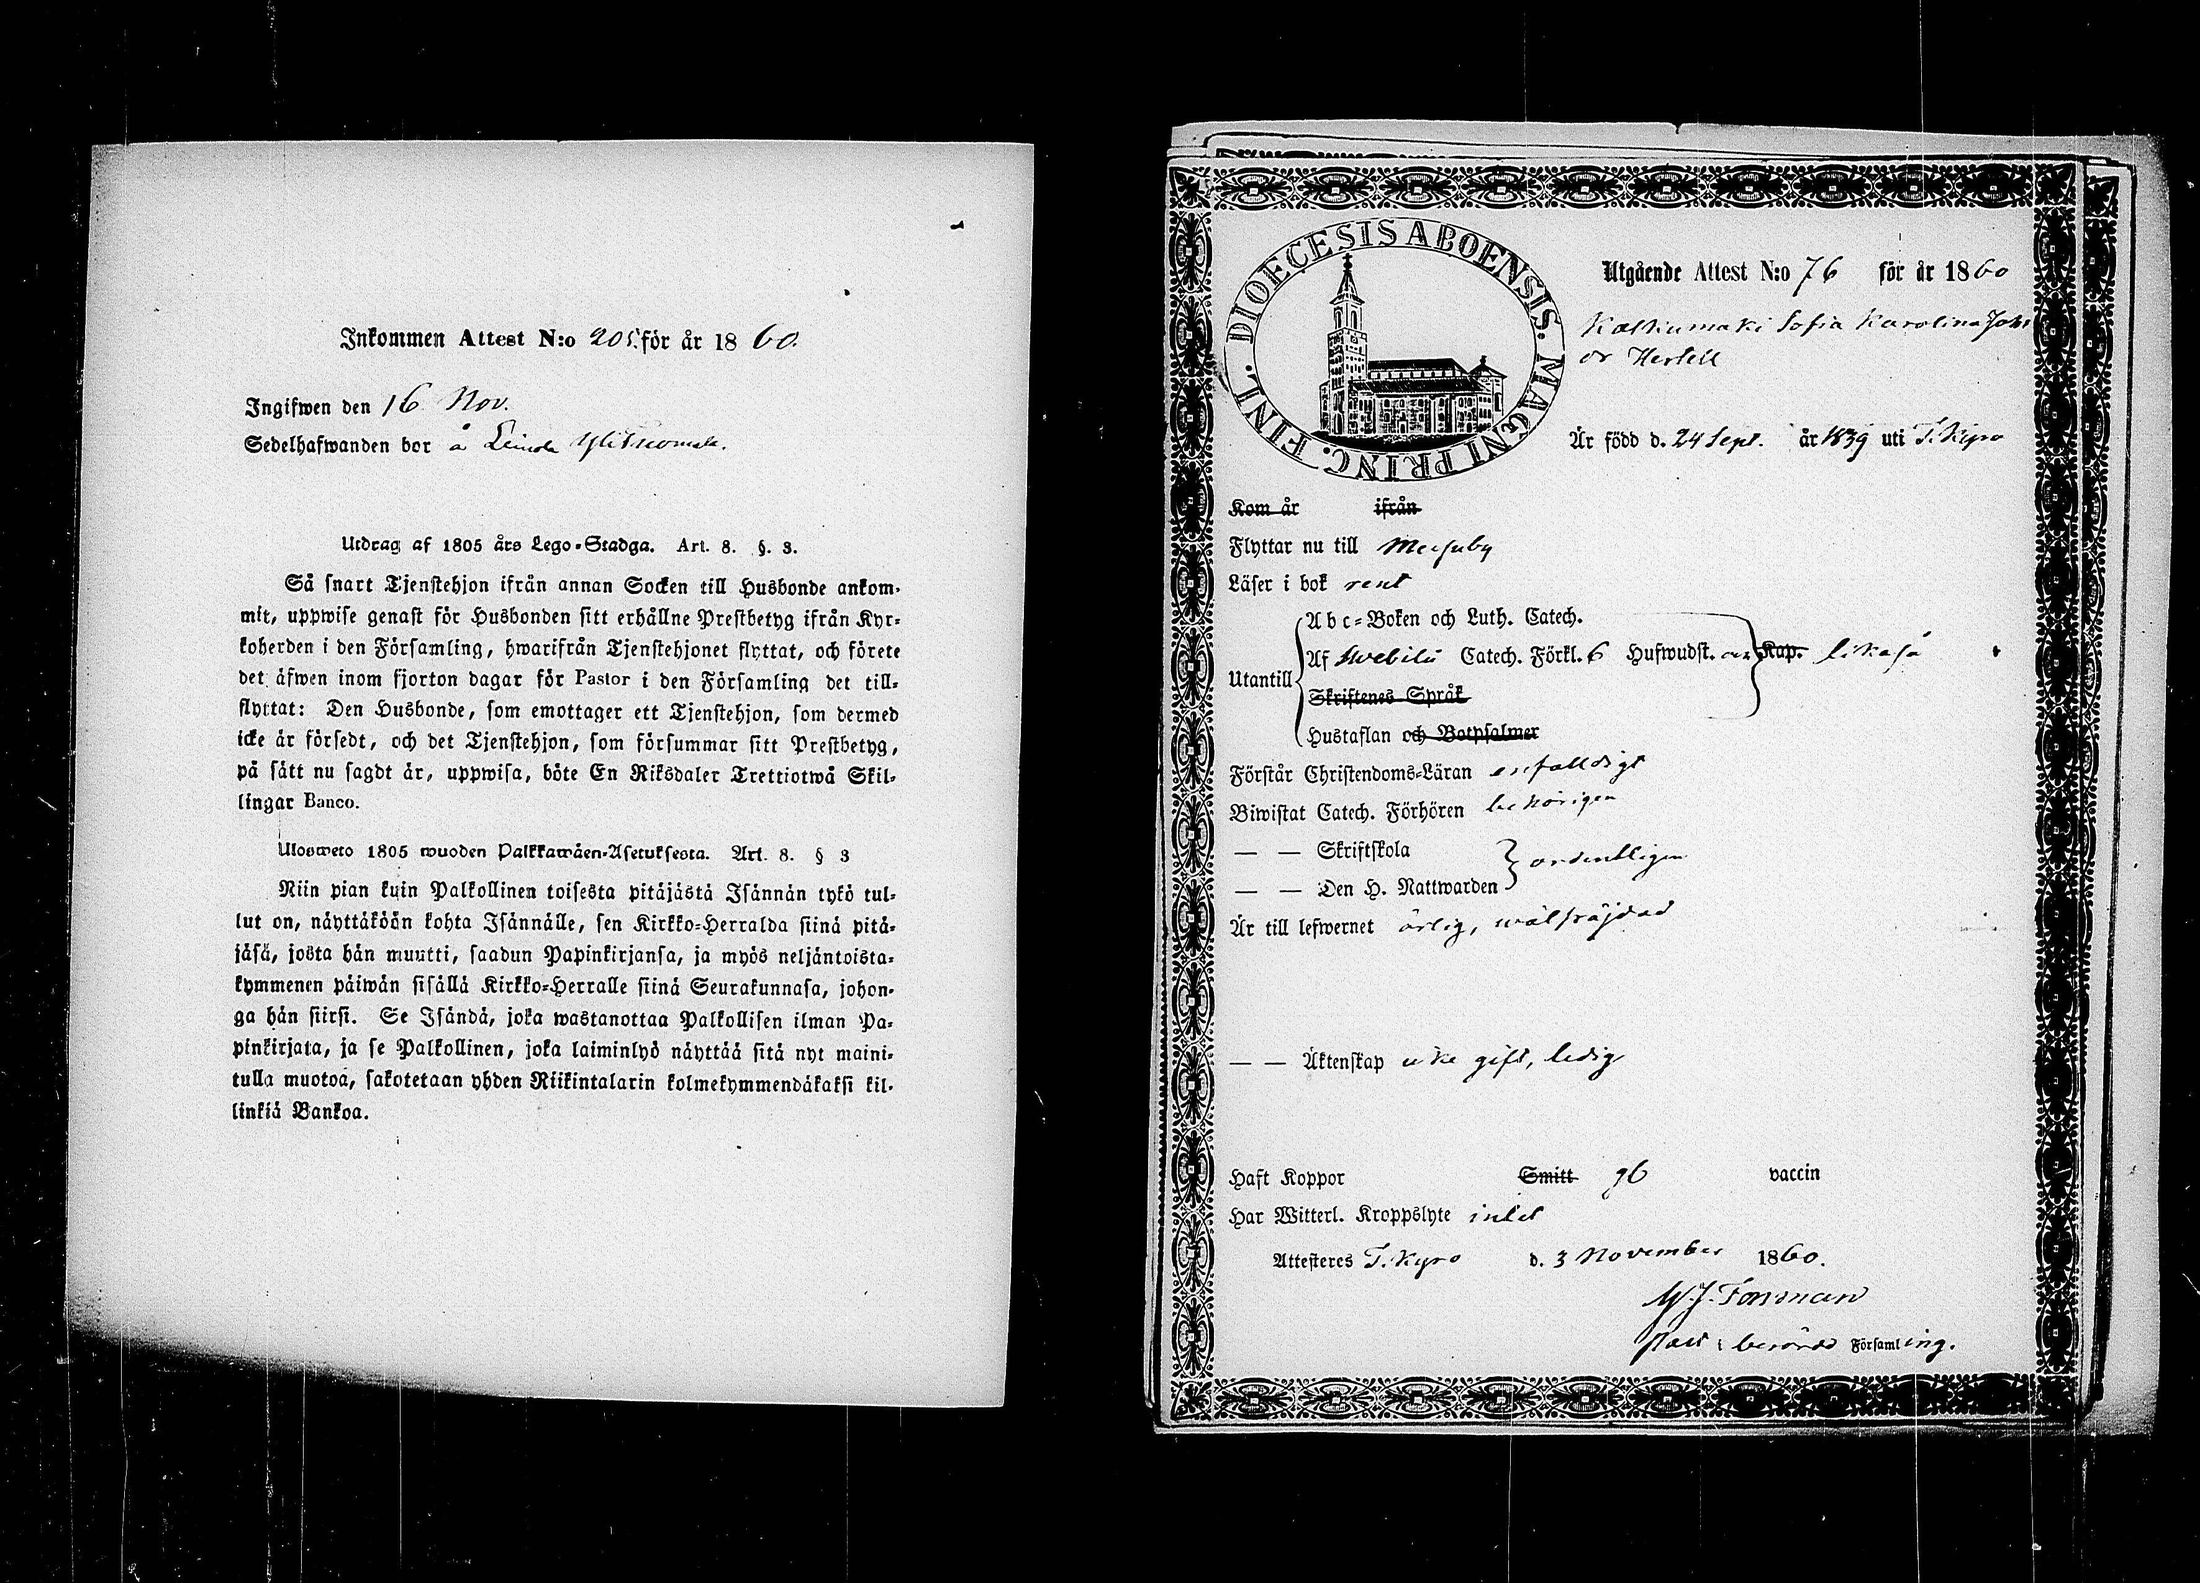 Inkommen Attest N:o 205. för år 1860.
Ingifwen den 16 Nov.
Sedelhafwanden bor å Leinola
Utdrag af 1805 års Lego-Stadga. Art. 8. §. 3.
Så snart Tjenstehjon ifrån annan Socken till Husbonde ankom-
mit, uppwise genast för Husbonden sitt erhållne Prestbetyg ifrån Kyr-
koherden i den Församling, hwarifrån Tjenstehjonet flyttat, och förete
det äfwen inom fjorton dagar för Pastor i den Församling det till-
flyttat: Den Husbonde, som emottager ett Tjenstehjon, som dermed
icke är försedt, och det Tjenstehjon, som försummar sitt Prestbetyg,
på sätt nu sagdt är, uppwisa, böte En Riksdaler Trettiotwå Skil-
lingar Banco.
Ulosweto 1805 wuoden Palkkawäen-Asetuksesta. Art. 8. § 3
Niin pian kuin Palkollinen toisesta pitäjästä Isännän tykö tul-
lut on, näyttäköön kohta Isännälle, sen Kirkko-Herralda siinä pitä-
jäsä, josta hän muutti, saadun Papinkirjansa, ja myös neljäntoista-
kymmenen päiwän sisällä Kirkko-Herralle siinä Seurakunnasa, johon-
ga hän siirsi. Se Isändä, joka wastanottaa Palkollisen ilman Pa-
pinkirjata, ja se Palkollinen, joka laiminlyö näyttää sitä nyt maini-
tulla muotoa, sakotetaan yhden Riikintalarin kolmekymmendäkaksi kil-
linkiä Bankoa.
DIOECESIS ABOENSIS. MAGNI PRINC. FINL.
Utgående Attest N:o 76 för år 1860
Kaskumaki Sofia Karolina Joh:
dr Hertell
Är född d. 24 Sept. år 1839 uti T. Kyro
Kom år ifrån
Flyttar nu till Messuby
Läser i bok rent
Abc-Boken och Luth. Catech.
Utantill Af Swebilii Catech. Förkl. 6 Hufwudst. Kap. likaså
Skriftenes Språk
Hustaflan och Botpsalmer
Förstår Christendoms-Läran enfalldigt
Biwistat Catech. Förhören behörigen
— — Skriftskola
ordentligen
— — Den H. Nattwarden
Är till lefwernet ärlig, wälfräjdad
— — Äktenskap icke gift, ledig
Haft Koppor Smitt gb vaccin
Har Witterl. Kroppslyte intet
Attesteres T. Kyro d. 3 November 1860.
Forsman
Past i berörde Församling.